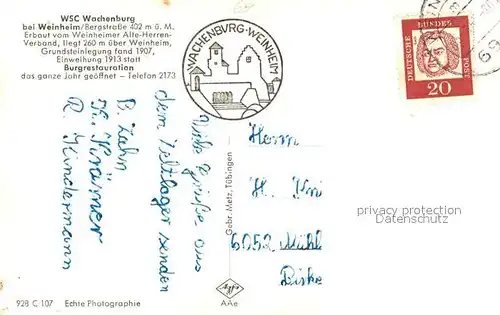 WSC Wachenburg
bei Weinheim/Bergstraße 402 m ü. M.
Erbaut vom Weinheimer Alte-Herren-
Verband, liegt 260 m über Weinheim,
Grundsteinlegung fand 1907,
Einweihung 1913 statt
Burgrestauration
das ganze Jahr geöffnet – Telefon 2173
WACHENBURG-WEINHEIM
DEUTSCHE
BUNDES
POST
20
Viele Grüße aus
dem Zeltlager senden
B. Zahn
K. Krämer
R. Kindermann
Gebr. Metz, Tübingen
Herrn
H.
6052 Mühl
privacy protection
928 C 107 Echte Photographie
Agfa
AAe